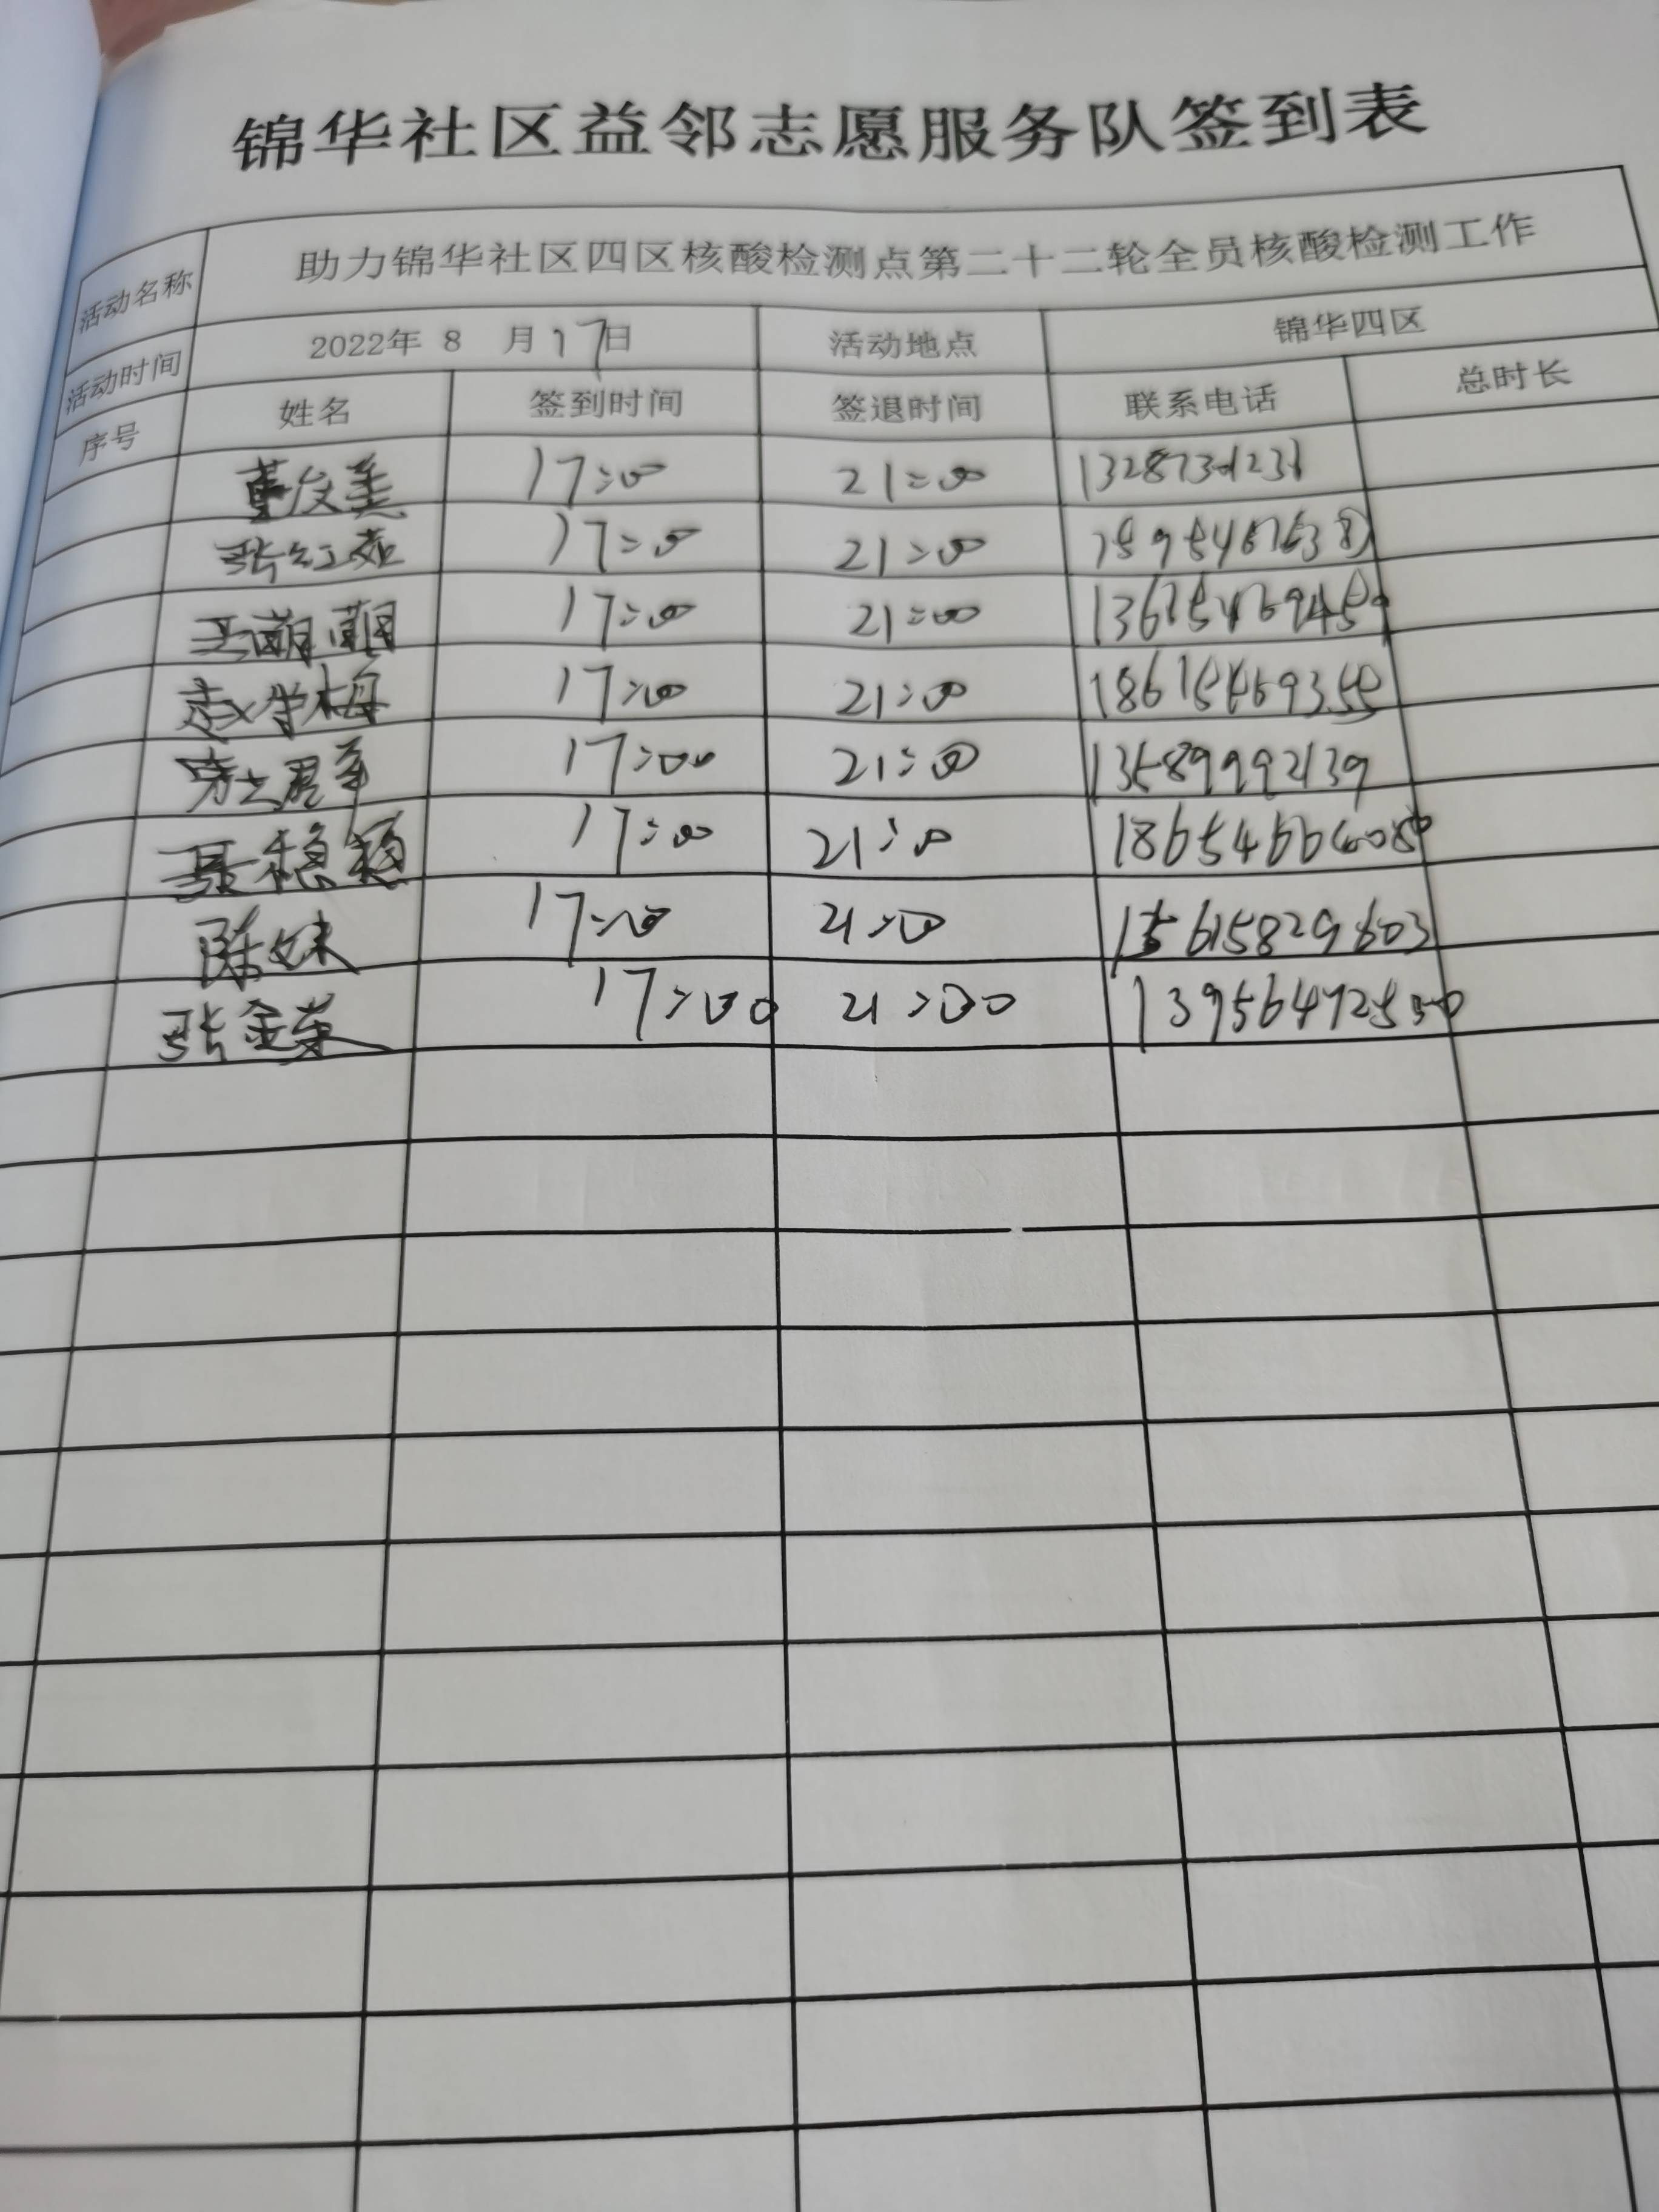 锦华社区益邻志愿服务队签到表
活动名称 助力锦华社区四区核酸检测点第二十二轮全员核酸检测工作
活动时间 2022年 8 月17日 活动地点 锦华四区
序号 姓名 签到时间 签退时间 联系电话 总时长
董友美 17:00 21:00
张红茹 17:00 21:00
王萌萌 17:00 21:00
赵学梅 17:00 21:00
17:00 21:00 13589992139
聂稳稳 17:00 21:00
陈妹 17:00 21:00 15615829603
张金荣 17:00 21:00